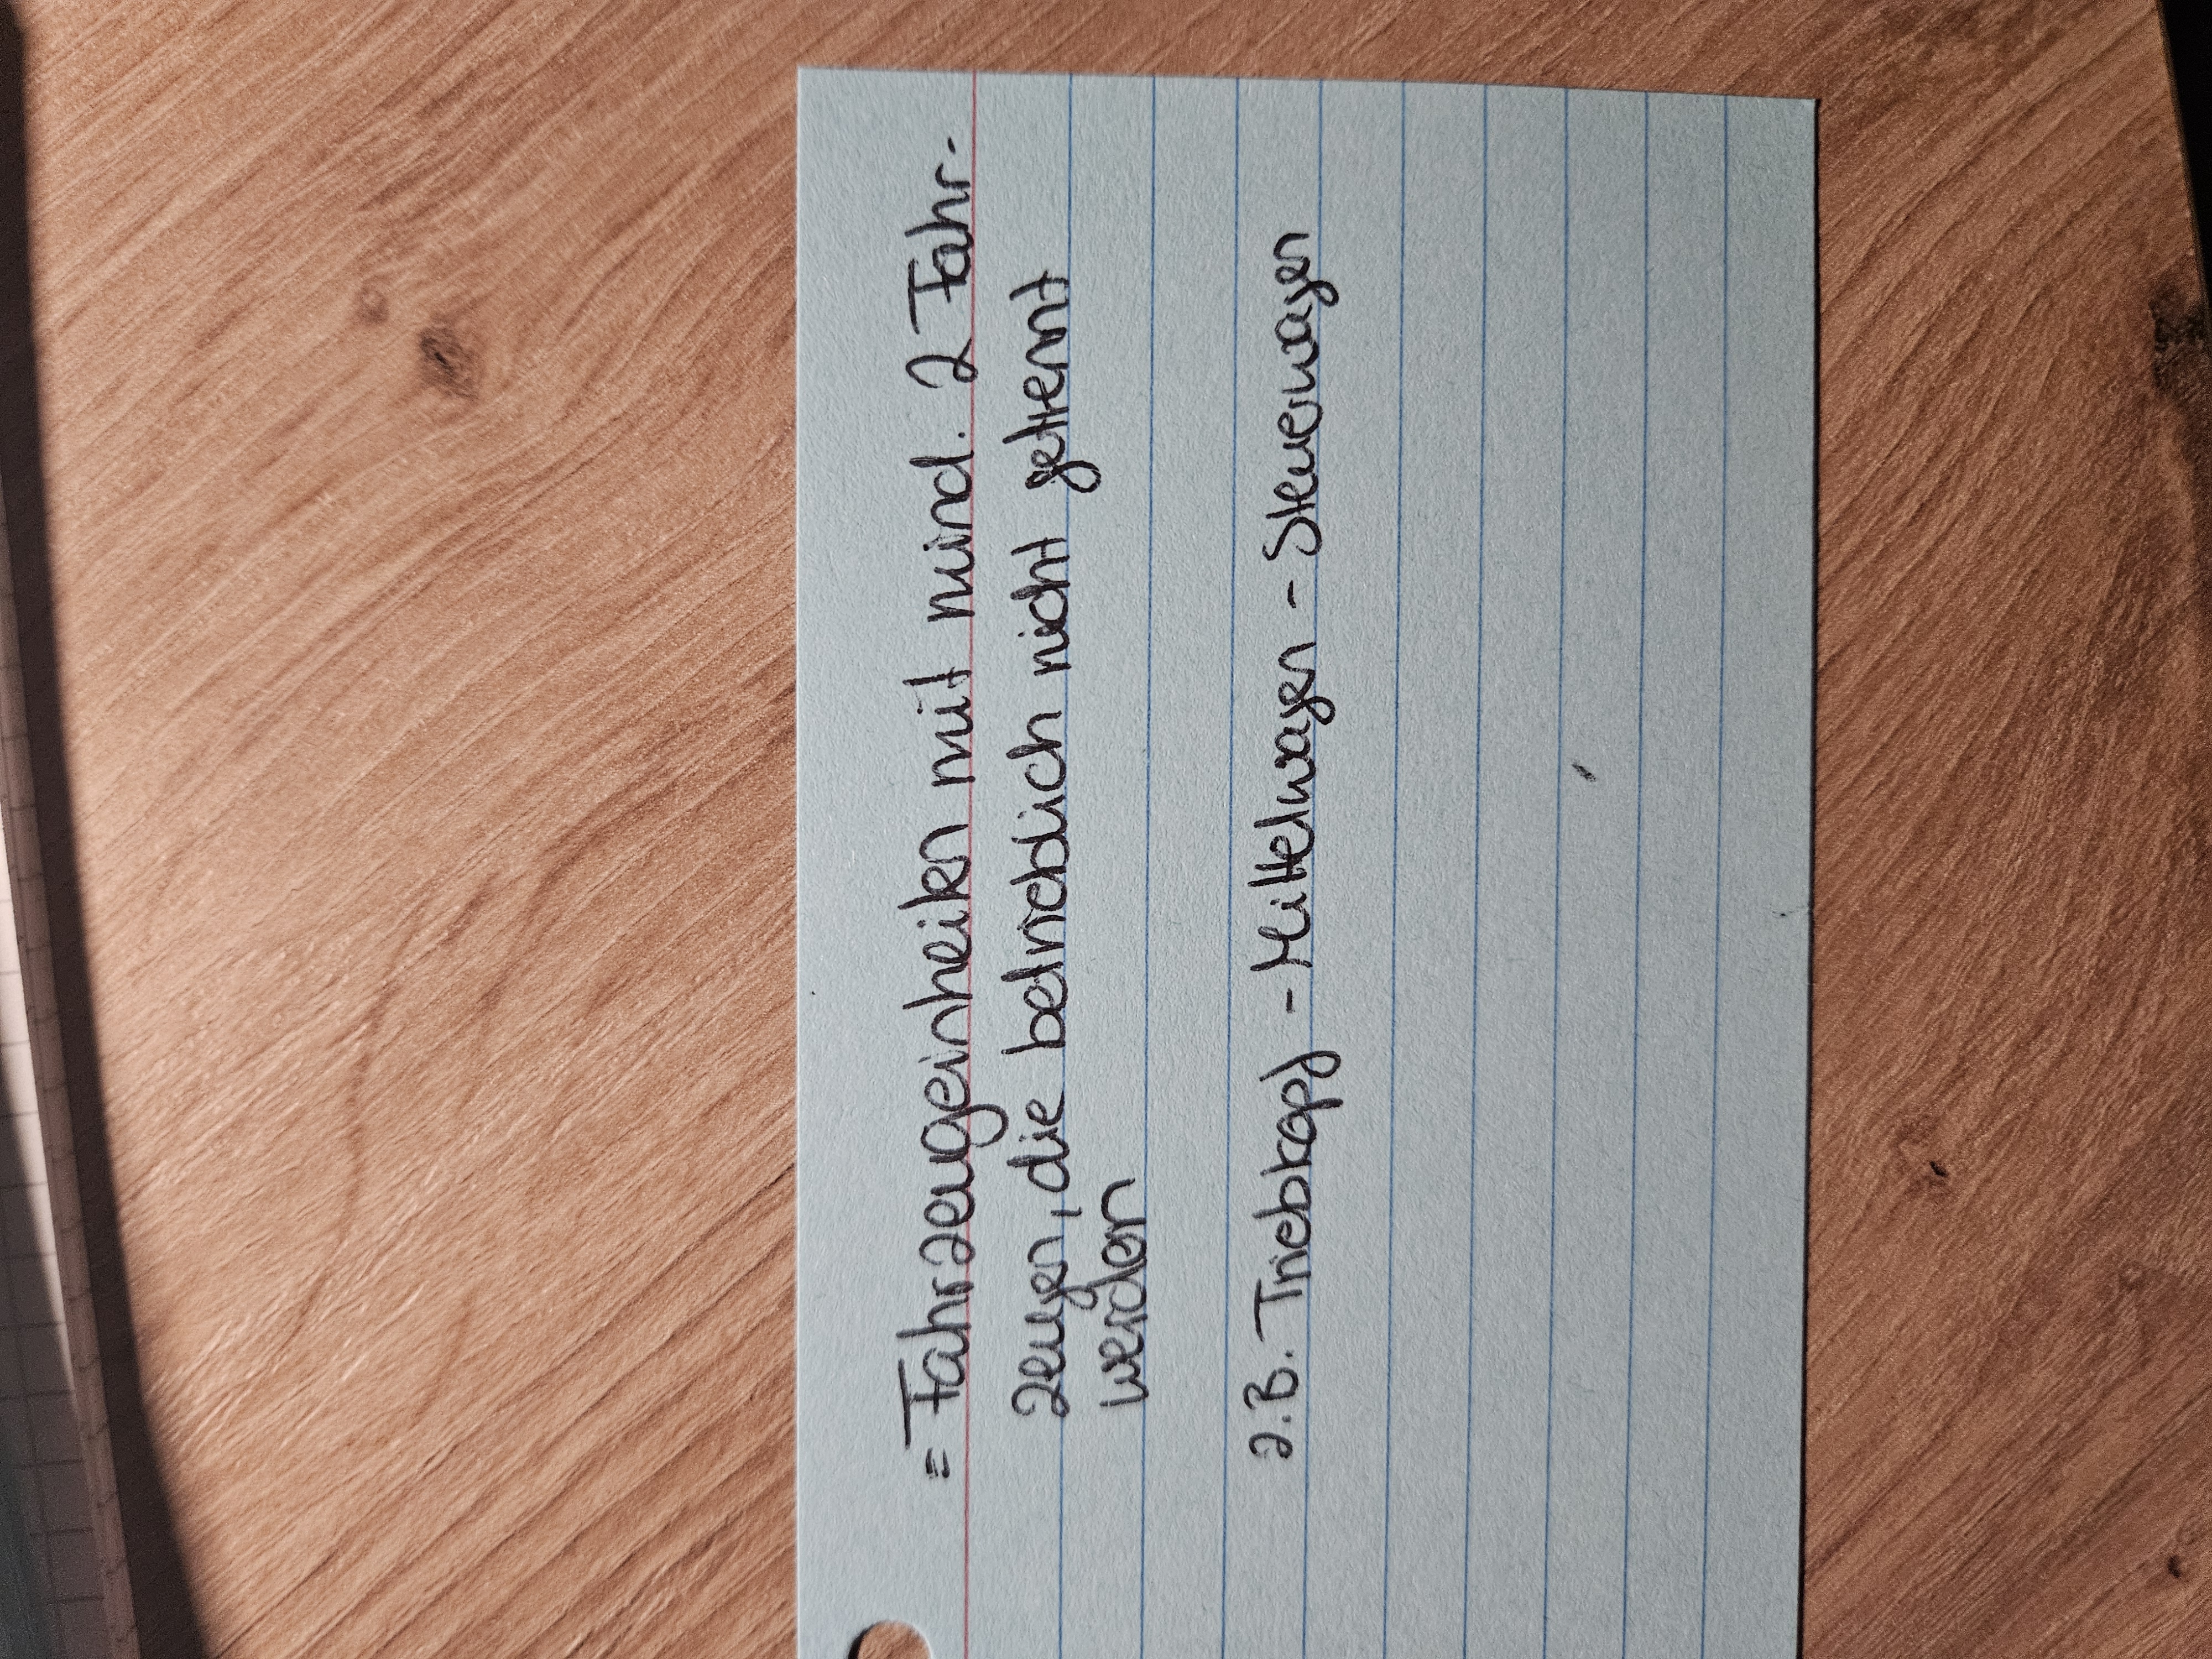 = Fahrzeugeinheiten mit mind. 2 Fahr-
zeugen, die betrieblich nicht getrennt
werden
z.B. Triebkopf - Mittelwagen - Steuerwagen